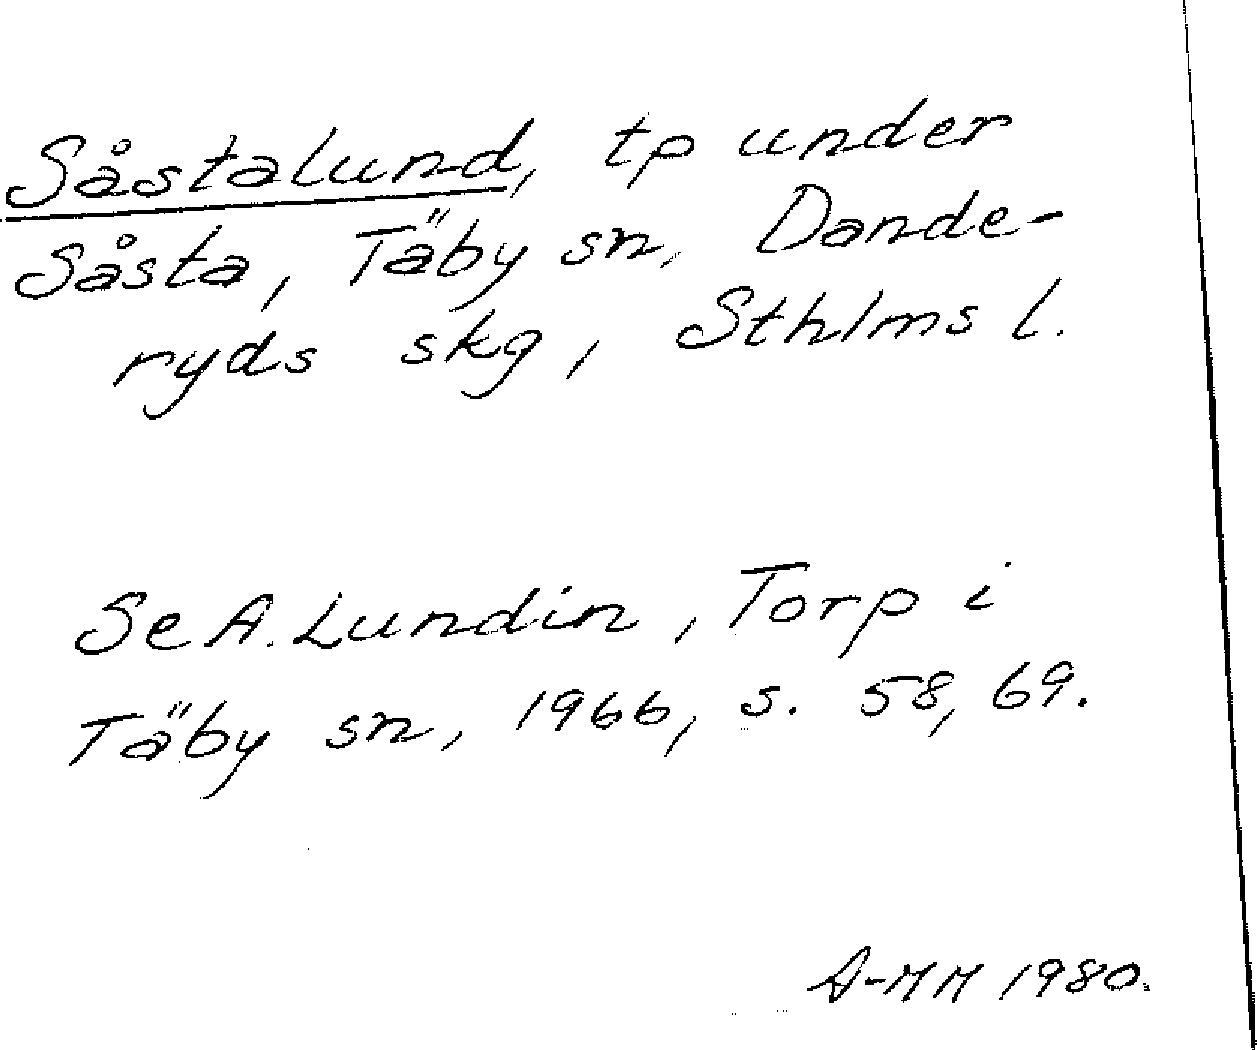 Såstalund, tp under
Såsta, Täby sn, Dande-
ryds skg, Sthlms l.
Se A. Lundin, Torp i
Täby sn, 1966, s. 58, 69.
A-MM 1980.